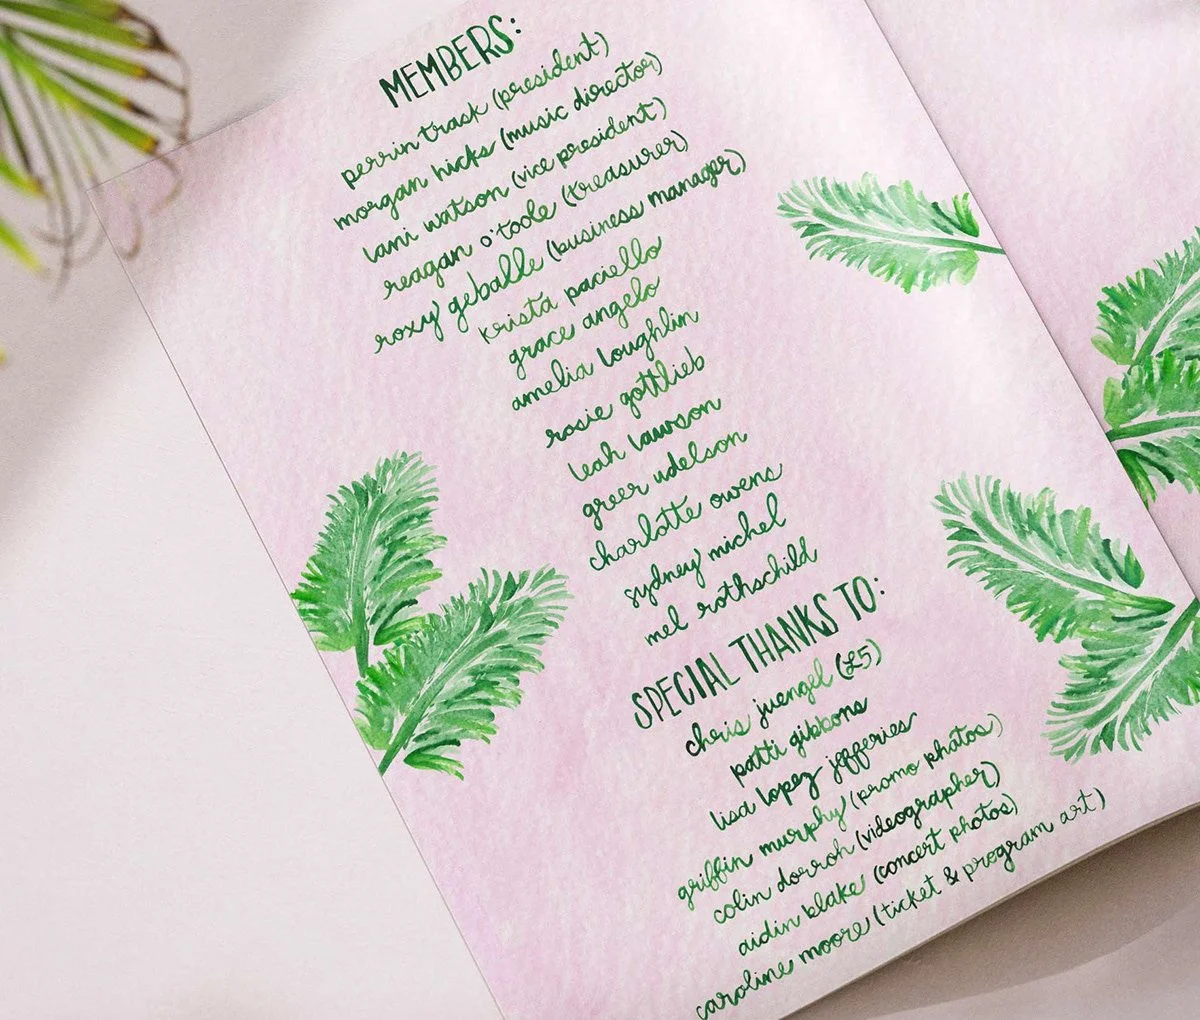 MEMBERS:
perrin trask (president)
morgan hicks (music director)
lami watson (vice president)
reagan o'toole (treasurer)
roxy geballe (business manager)
krista paciello
grace angelo
amelia loughlin
rosie gottlieb
leah lawson
greer udelson
charlotte owens
sydney michel
mel rothschild
SPECIAL THANKS TO:
chris juengel (£5)
patti gibbons
lisa lopez jefferies
griffin murphy (promo photos)
colin dorroh (videographer)
aidin blake (concert photos)
caroline moore (ticket & program art)